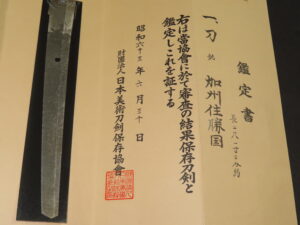 鑑定書
一、刀 銘 加州住勝国
長二尺二寸
右は當協會に於て審査の結果保存刀剣と
鑑定しこれを証する
昭和六十三年六月三十日
財団法人日本美術刀剣保存協會